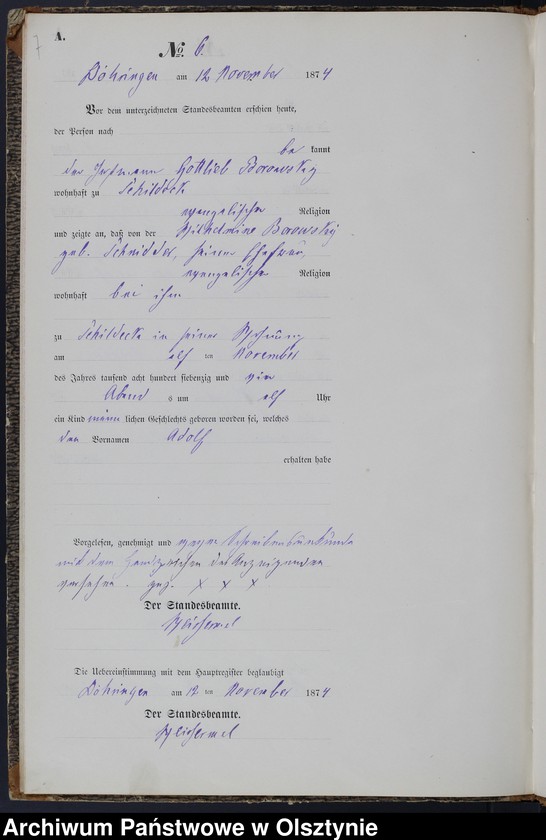 7
A.
No 6.
Döhringen am 12 November 1874
Vor dem unterzeichneten Standesbeamten erschien heute,
der Person nach
be kannt
der Gottlieb Borowsky
wohnhaft zu Schildeck
evangelischer Religion
und zeigte an, daß von der Wilhelmine Borowsky
geb. seiner Ehefrau,
evangelische Religion
wohnhaft bei ihm
zu Schildeck in seiner Wohnung
am elf ten November
des Jahres tausend acht hundert siebenzig und vier
Abend s um elf Uhr
ein Kind männ lichen Geschlechts geboren worden sei, welches
den Vornamen Adolf
erhalten habe
Vorgelesen, genehmigt und wegen Schreibensunkunde
mit dem Handzeichen des Anzeigenden
versehen. gez. X X X
Der Standesbeamte.
Die Uebereinstimmung mit dem Hauptregister beglaubigt
Döhringen am 12 ten November 1874
Der Standesbeamte.
Archiwum Państwowe w Olsztynie